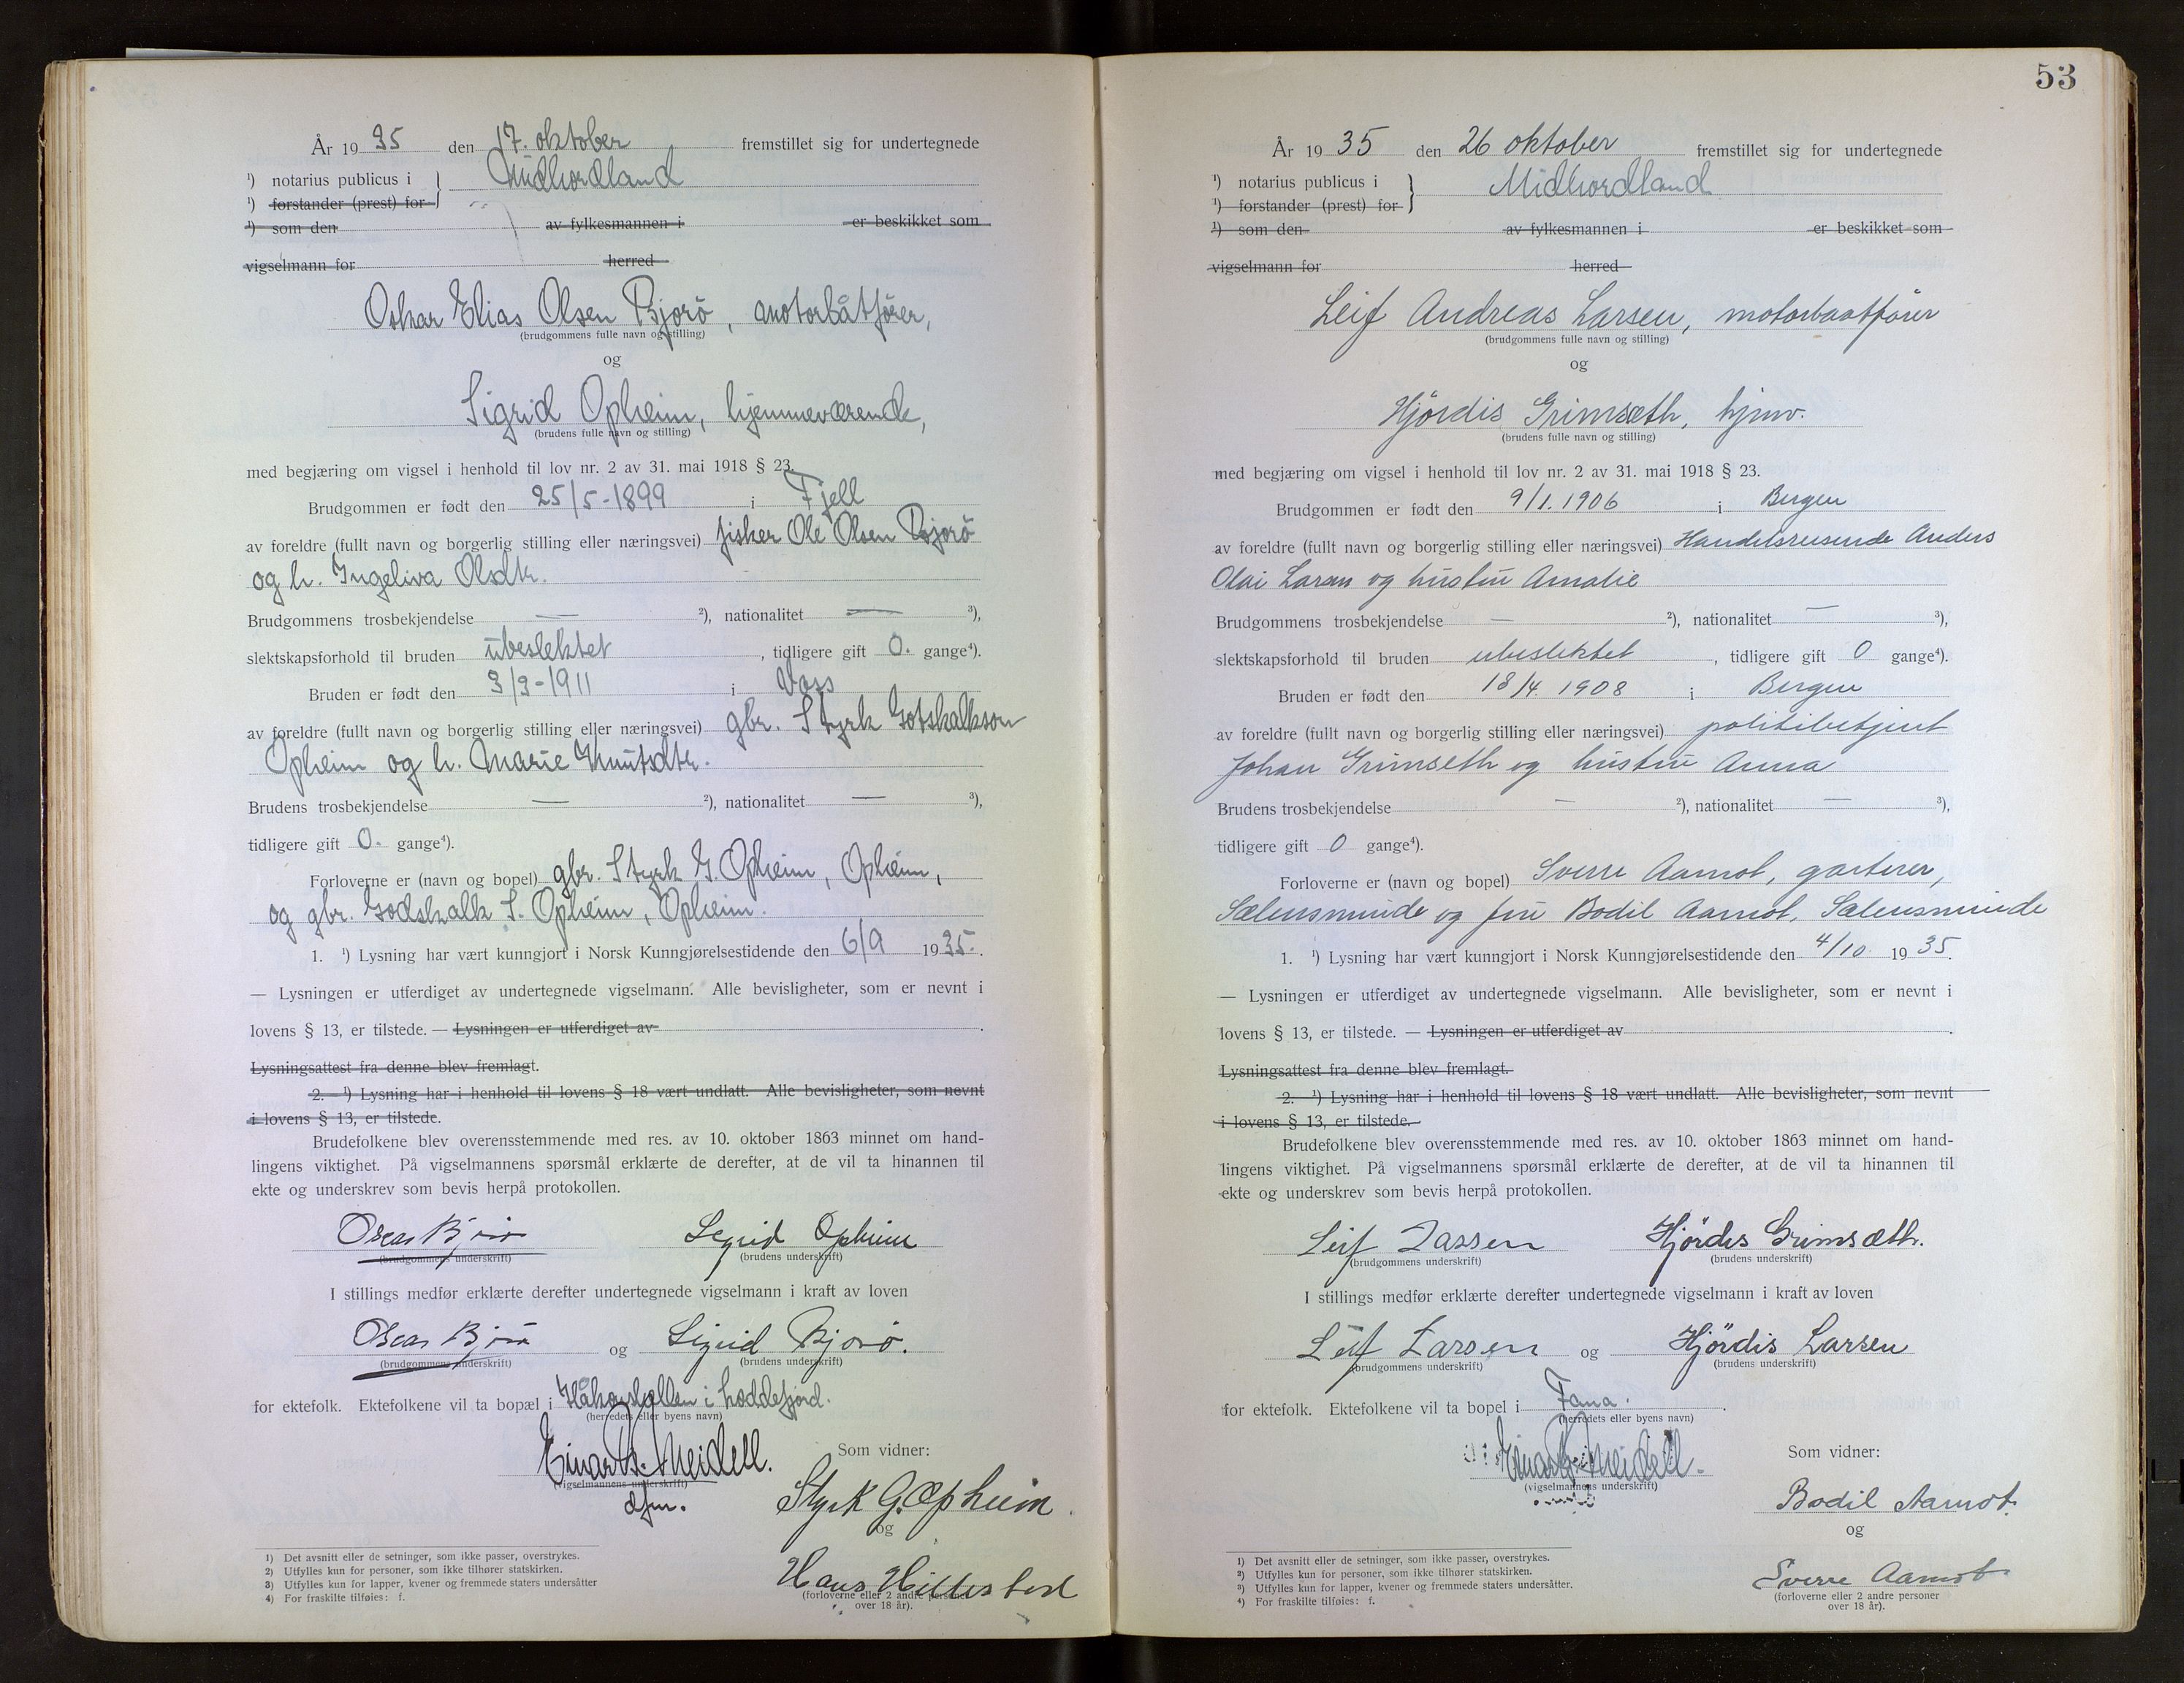 År 19 35 den 17. oktober fremstillet sig for undertegnede
¹) notarius publicus i } Midhordland
¹) forstander (prest) for
¹) som den av fylkesmannen i er beskikket som
vigselmann for herred
Oskar Elias Olsen Bjorö, motorbåtfører,
(brudgommens fulle navn og stilling)
og
Sigrid Opheim, hjemmeværende,
(brudens fulle navn og stilling)
med begjæring om vigsel i henhold til lov nr. 2 av 31. mai 1918 § 23.
Brudgommen er født den 25/5-1899 i Fjell
av foreldre (fullt navn og borgerlig stilling eller næringsvei) fisker Ole Olsen Bjorö
og h. Ingeliva Olsdtr.
Brudgommens trosbekjendelse — ²), nationalitet — ³),
slektskapsforhold til bruden ubeslektet, tidligere gift 0. gange⁴).
Bruden er født den 3/3-1911 i Voss
av foreldre (fullt navn og borgerlig stilling eller næringsvei) gbr. Styrk Gotskalkson
Opheim og h. Marie Knutsdtr.
Brudens trosbekjendelse — ²), nationalitet — ³),
tidligere gift 0. gange⁴).
Forloverne er (navn og bopel) gbr. Styrk G. Opheim, Opheim,
og gbr. Godskalk S. Opheim, Opheim.
1. ¹) Lysning har vært kunngjort i Norsk Kunngjørelsestidende den 6/9 1935.
— Lysningen er utferdiget av undertegnede vigselmann. Alle bevisligheter, som er nevnt i
lovens § 13, er tilstede. — Lysningen er utferdiget av .
Lysningsattest fra denne blev fremlagt.
2. ¹) Lysning har i henhold til lovens § 18 vært undlatt. Alle bevisligheter, som nevnt
i lovens § 13, er tilstede.
Brudefolkene blev overensstemmende med res. av 10. oktober 1863 minnet om hand-
lingens viktighet. På vigselmannens spørsmål erklærte de derefter, at de vil ta hinannen til
ekte og underskrev som bevis herpå protokollen.
Oscar Bjorö Sigrid Opheim
(brudgommens underskrift) (brudens underskrift)
I stillings medfør erklærte derefter undertegnede vigselmann i kraft av loven
Oscar Bjorö og Sigrid Bjorö.
(brudgommens underskrift) (brudens underskrift)
for ektefolk. Ektefolkene vil ta bopæl i Håkonshellen i Loddefjord.
(herredets eller byens navn)
Einar Meidell. Som vidner:
(vigselmannens underskrift)
dfm. Styrk G. Opheim
og
Hans Hillestad
(forloverne eller 2 andre personer
over 18 år).
1) Det avsnitt eller de setninger, som ikke passer, overstrykes.
2) Utfylles kun for personer, som ikke tilhører statskirken.
3) Utfylles kun for lapper, kvener og fremmede staters undersåtter
4) For fraskilte tilføies: f.
53
År 19 35 den 26 oktober fremstillet sig for undertegnede
¹) notarius publicus i } Midhordland
¹) forstander (prest) for
¹) som den av fylkesmannen i er beskikket som
vigselmann for herred
Leif Andreas Larsen, motorbaatfører
(brudgommens fulle navn og stilling)
og
Hjördis Grimseth, hjmv.
(brudens fulle navn og stilling)
med begjæring om vigsel i henhold til lov nr. 2 av 31. mai 1918 § 23.
Brudgommen er født den 9/1. 1906 i Bergen
av foreldre (fullt navn og borgerlig stilling eller næringsvei) Handelsreisende Anders
Olai Larsen og hustru Amalie
Brudgommens trosbekjendelse — ²), nationalitet — ³),
slektskapsforhold til bruden ubeslektet, tidligere gift 0 gange⁴).
Bruden er født den 18/4. 1908 i Bergen
av foreldre (fullt navn og borgerlig stilling eller næringsvei) politibetjent
Johan Grimseth og hustru Anna
Brudens trosbekjendelse — ²), nationalitet — ³),
tidligere gift 0 gange⁴).
Forloverne er (navn og bopel) Sverre Aamot, gartner,
Sælensminde og fru Bodil Aamot, Sælensminde
1. ¹) Lysning har vært kunngjort i Norsk Kunngjørelsestidende den 4/10 19 35.
— Lysningen er utferdiget av undertegnede vigselmann. Alle bevisligheter, som er nevnt i
lovens § 13, er tilstede. — Lysningen er utferdiget av .
Lysningsattest fra denne blev fremlagt.
2. ¹) Lysning har i henhold til lovens § 18 vært undlatt. Alle bevisligheter, som nevnt
i lovens § 13, er tilstede.
Brudefolkene blev overensstemmende med res. av 10. oktober 1863 minnet om hand-
lingens viktighet. På vigselmannens spørsmål erklærte de derefter, at de vil ta hinannen til
ekte og underskrev som bevis herpå protokollen.
Leif Larsen Hjördis Grimsæth.
(brudgommens underskrift) (brudens underskrift)
I stillings medfør erklærte derefter undertegnede vigselmann i kraft av loven
Leif Larsen og Hjördis Larsen
(brudgommens underskrift) (brudens underskrift)
for ektefolk. Ektefolkene vil ta bopel i Fana.
(herredets eller byens navn)
Einar Meidell. Som vidner:
(vigselmannens underskrift)
Bodil Aamot.
og
Sverre Aamot
(forloverne eller 2 andre personer
over 18 år).
1) Det avsnitt eller de setninger, som ikke passer, overstrykes.
2) Utfylles kun for personer, som ikke tilhører statskirken.
3) Utfylles kun for lapper, kvener og fremmede staters undersåtter.
4) For fraskilte tilføies: f.